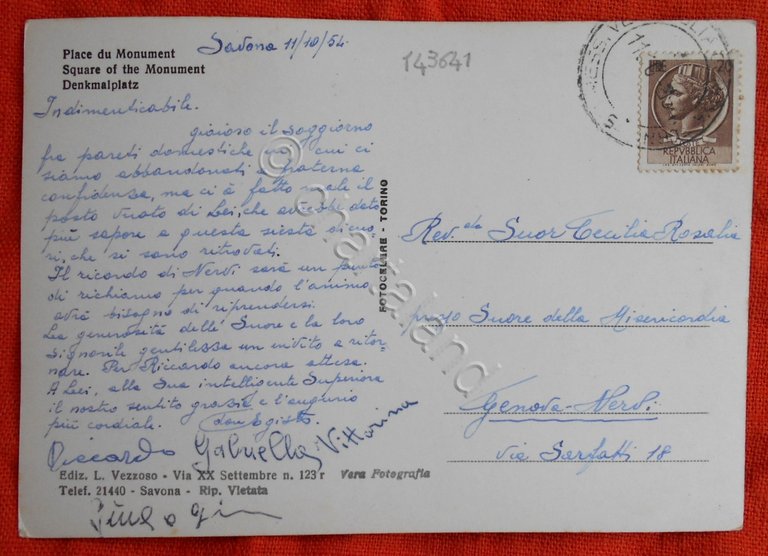 Place du Monument
Square of the Monument
Denkmalplatz
Savona 11/10/54.
143641
Indimenticabile.
gioioso il soggiorno
fra pareti domestiche in cui ci
siamo abbandonati a fraterna
confidenza, ma ci ha fatto male il
posto vuoto di Lei, che avrebbe dato
più sapore a questa siesta di cuo
ri, che si sono ritrovati.
Il ricordo di Nervi sarà un punto
di richiamo per quando l'animo
avrà bisogno di riprendersi.
La generosità delle Suore e la loro
signorile gentilezza un invito a ritor-
nare. Per Riccardo ancora attesa.
A Lei, alla Sua intelligente Superiora
il nostro sentito grazie e l'augurio
più cordiale. don Egisto
Riccardo Gabriella Vittorina
Ediz. L. Vezzoso - Via XX Settembre n. 123 r Vera Fotografia
Telef. 21440 - Savona - Rip. Vietata
FOTOCELERE - TORINO
POSTE
REPVBBLICA
ITALIANA
Rev.da Suor Cecilia Rosalia
presso Suore della Misericordia
Genova-Nervi
Via Sarfatti 18
© cheitaliand